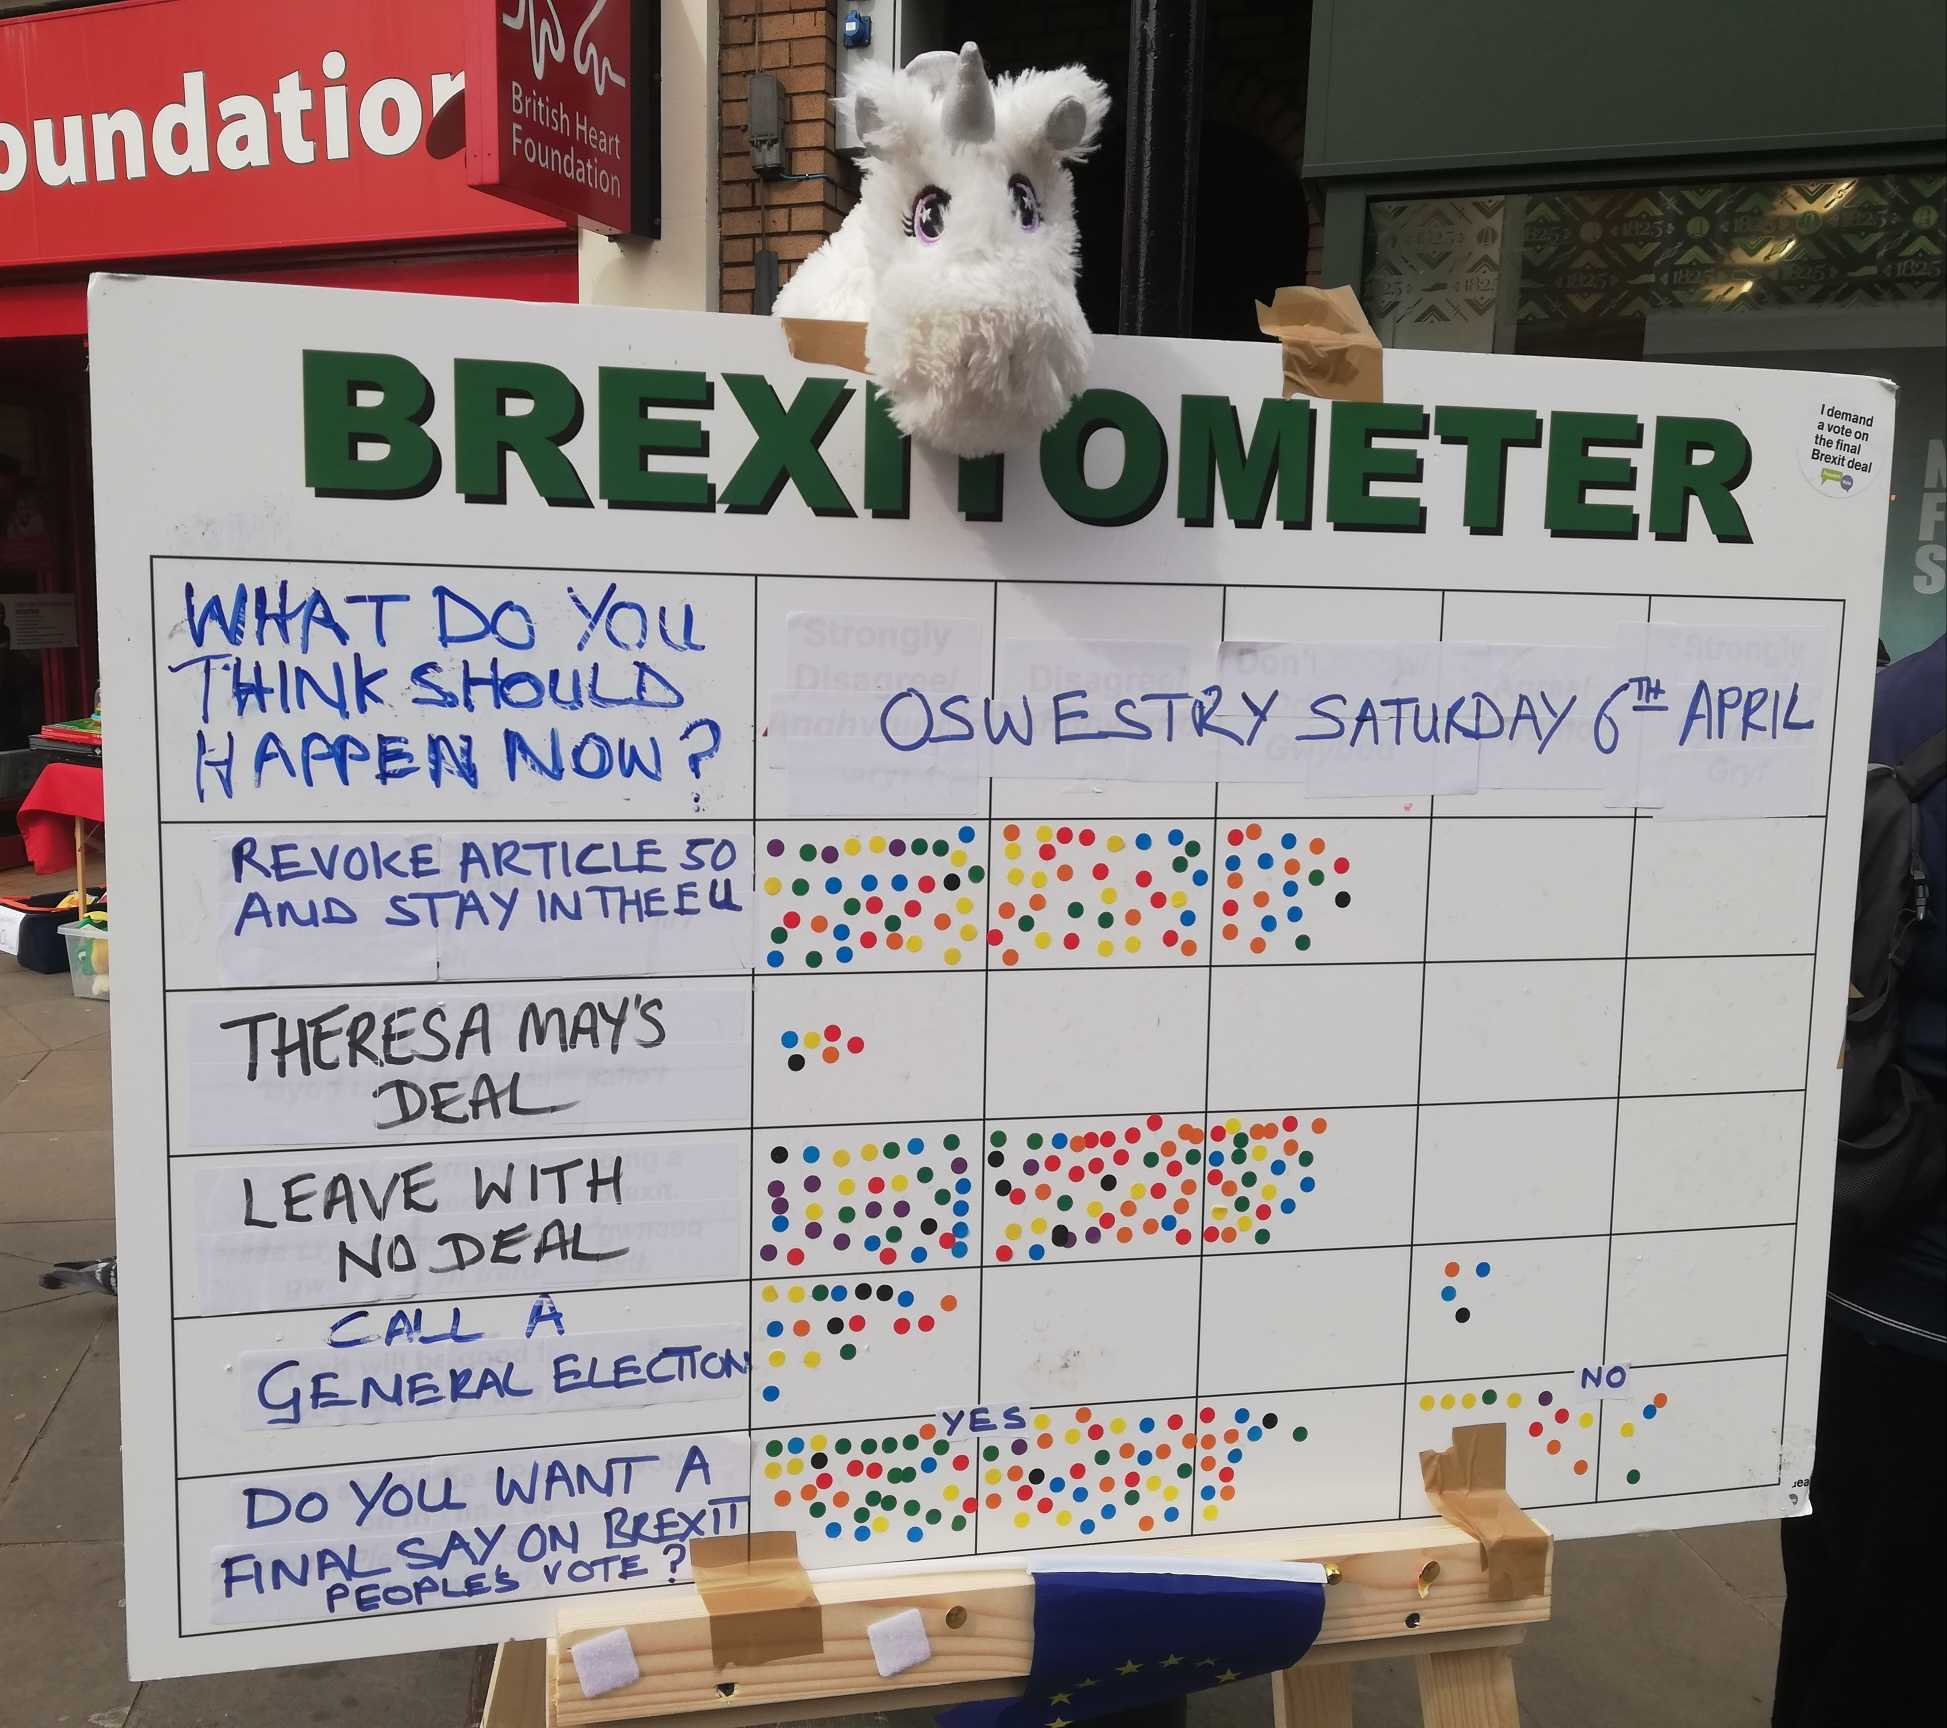 oundation
British Heart
Foundation
BREXITOMETER
I demand
a vote on
the final
Brexit deal
WHAT DO YOU
THINK SHOULD
HAPPEN NOW?
Strongly
Disagree/
Disagree/
Don't
Strongly
Gryf
OSWESTRY SATURDAY 6TH APRIL
REVOKE ARTICLE 50
AND STAY IN THE EU
THERESA MAY'S
DEAL
LEAVE WITH
NO DEAL
CALL A
GENERAL ELECTION
DO YOU WANT A
FINAL SAY ON BREXIT
PEOPLE'S VOTE?
YES
NO
1825